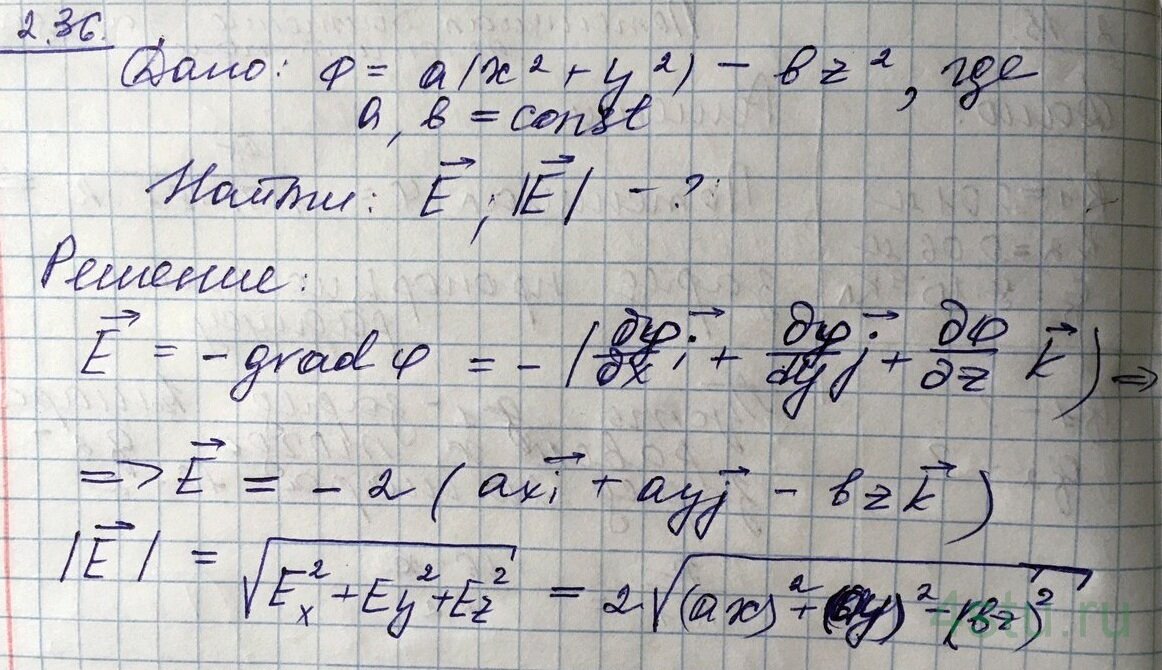 2.36.
Дано: φ = a(x² + y²) - bz², где
a, b = const
Найти: E⃗; |E⃗| - ?
Решение:
E⃗ = - grad φ = - (∂φ/∂x i⃗ + ∂φ/∂y j⃗ + ∂φ/∂z k⃗) =>
=> E⃗ = - 2 (axi⃗ + ayj⃗ - bzk⃗)
|E⃗| = √(Eₓ² + Ey² + Ez²) = 2√((ax)² + (ay)² - (bz)²)
4stu.ru